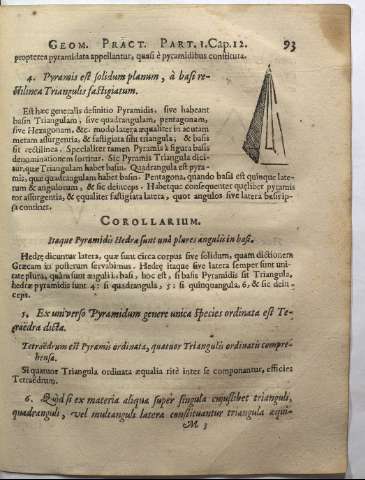 GEOM. PRACT. PART. I. Cap. 12. 93
propterea pyramidata appellantur, quasi è pyramidibus constituta.
4. Pyramis est solidum planum, à basi re-
ctilinea Triangulis fastigiatum.
Est hæc generalis definitio Pyramidis, sive habeant
basin Triangulam, sive quadrangulam, pentagonam,
sive Hexagonam, &c. modo latera æqualiter in acutam
metam assurgentia, & fastigiata sint triangula, & basis
sit rectilinea. Specialiter tamen Pyramis à figura basis
denominationem sortitur. Sic Pyramis Triangula dici-
tur, quæ Triangulam habet basin. Quadrangula est pyra-
mis, quæ quadrangulam habet basin. Pentagona, quando basis est quinque late-
rum & angulorum, & sic deinceps. Habetque consequenter quælibet pyramis
tot assurgentia, & æqualiter fastigiata latera, quot angulos sive latera basis ip-
sa continet.
COROLLARIUM.
Itaque Pyramidis Hedræ sunt unâ plures angulis in basi.
Hedræ dicuntur latera, quæ sunt circa corpus sive solidum, quam dictionem
Græcam in posterum servabimus. Hedræ itaque sive latera semper sunt uni-
tate plura, quàm sunt anguli in basi, hoc est, si basis Pyramidis sit Triangula,
hedræ pyramidis sunt 4: si quadrangula, 5: si quinquangula, 6, & sic dein-
ceps.
5. Ex universo Pyramidum genere unica species ordinata est Te-
traëdra dicta.
Tetraëdrum est Pyramis ordinata, quatuor Triangulis ordinatis compre-
hensa.
Si quatuor Triangula ordinata æqualia ritè inter se componantur, efficies
Tetraëdrum.
6. Quòd si ex materia aliqua super singula cujuslibet trianguli,
quadranguli, vel multanguli latera constituantur triangula æqui-
M 3